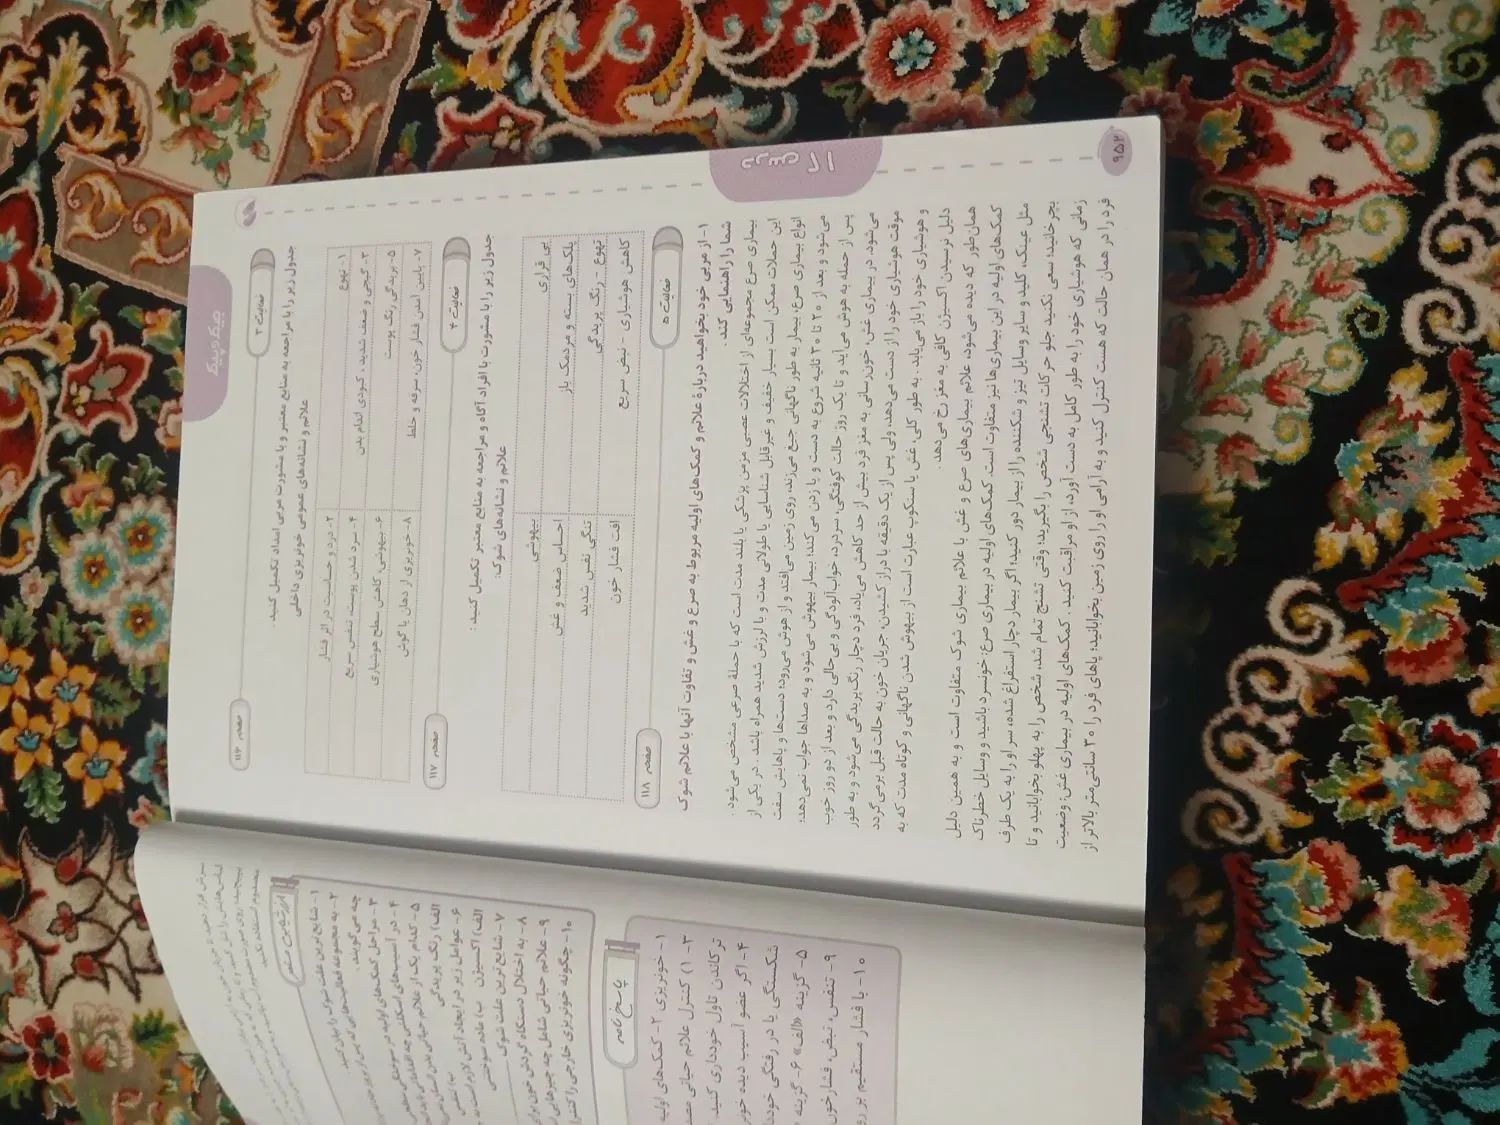 درس ۱۲
۹۵۲
فعالیت ۳
صفحه ۱۱۶
جدول زیر را با مراجعه به منابع معتبر و با مشورت مربی امداد تکمیل کنید.
علائم و نشانه‌های عمومی خونریزی داخلی
۱- تهوع
۲- درد و حساسیت در اثر فشار
۳- گیجی و ضعف شدید ، کبودی اندام بدن
۴- سرد شدن پوست تنفس سریع
۵- پریدگی رنگ پوست
۶- بیهوشی، کاهش سطح هوشیاری
۷- پایین آمدن فشار خون، سرفه و خلط
۸- خونریزی از دهان یا گوش
فعالیت ۴
صفحه ۱۱۷
جدول زیر را با مشورت با افراد آگاه و مراجعه به منابع معتبر تکمیل کنید :
علائم و نشانه‌های شوک:
بی قراری
بیهوشی
پلک‌های بسته و مردمک باز
احساس ضعف و غش
تهوع - رنگ پریدگی
تنگی نفس شدید
کاهش هوشیاری - نبض سریع
افت فشار خون
فعالیت ۵
صفحه ۱۱۸
۱- از مربی خود بخواهید دربارهٔ علائم و کمک‌های اولیه مربوط به صرع و غش و تفاوت آنها با علائم شوک
شما را راهنمایی کند.
بیماری صرع مجموعه‌ای از اختلالات عصبی مزمن پزشکی یا بلند مدت است که با حملهٔ صرعی مشخص می‌شود.
این حملات ممکن است بسیار خفیف و غیرقابل شناسایی یا طولانی مدت و با لرزش شدید همراه باشد. در یکی از
انواع بیماری صرع، بیمار به طور ناگهانی جیغ می‌زند، روی زمین می‌افتد و از هوش می‌رود؛ دست‌ها و پاهایش سفت
می‌شود و بعد از ۱۰ تا ۳۰ ثانیه شروع به دست و پا زدن می‌کند؛ بیمار بیهوش می‌شود و به صداها جواب نمی‌دهد؛
پس از حمله به هوش می‌آید و تا یک روز حالت کوفتگی، سردرد، خواب‌آلودگی و بی‌حالی دارد و بعد از دو روز خوب
می‌شود. در بیماری غش، خون‌رسانی به مغز فرد بیش از حد کاهش می‌یابد، فرد دچار رنگ‌پریدگی می‌شود و به طور
موقت هوشیاری خود را از دست می‌دهد، ولی پس از یک دقیقه با دراز کشیدن، جریان خون به حالت قبل برمی‌گردد
و هوشیاری خود را باز می‌یابد. به طور کلی غش یا سنکوپ عبارت است از بیهوش شدن ناگهانی و کوتاه مدت که به
دلیل نرسیدن اکسیژن کافی به مغز رخ می‌دهد.
همان‌طور که دیده می‌شود، علائم بیماری‌های صرع و غش با علائم بیماری شوک متفاوت است و به همین دلیل
کمک‌های اولیه در این بیماری‌ها نیز متفاوت است. کمک‌های اولیه در بیماری صرع: خونسرد باشید و وسایل خطرناک
مثل عینک، کلید و سایر وسایل تیز و شکننده را از بیمار دور کنید؛ اگر بیمار دچار استفراغ شده، سر او را به یک طرف
بچرخانید؛ سعی نکنید جلو حرکات تشنجی شخص را بگیرید؛ وقتی تشنج تمام شد، شخص را به پهلو بخوابانید و تا
زمانی که هوشیاری خود را به طور کامل به دست آورد، از او مراقبت کنید. کمک‌های اولیه در بیماری غش: وضعیت
فرد را در همان حالت که هست کنترل کنید و به آرامی او را روی زمین بخوابانید؛ پاهای فرد را ۳۰ سانتی‌متر بالاتر از
۱- شایع‌ترین علت شوک را بیان کنید.
چه می‌گویند.
الف) رنگ پریدگی
الف) اکسیژن ب) ماده سوختنی
۷- شایع‌ترین علت شوک
۸- به اختلال دستگاه گردش خون برای
۹- علائم حیاتی شامل چه چیزهایی
۱۰- چگونه خونریزی خارجی را کنترل
پاسخ نامه
۱- خونریزی ۲- کمک‌های اولیه
۳- ۱) کنترل علائم حیاتی مصدوم
ترکاندن تاول خودداری کنید.
۴- اگر عضو آسیب دیده خون
شکستگی یا در رفتگی خودداری
۵- گزینه «الف» ۶- گزینه
۹- تنفس، نبض، فشارخون
۱۰- با فشار مستقیم بر رو